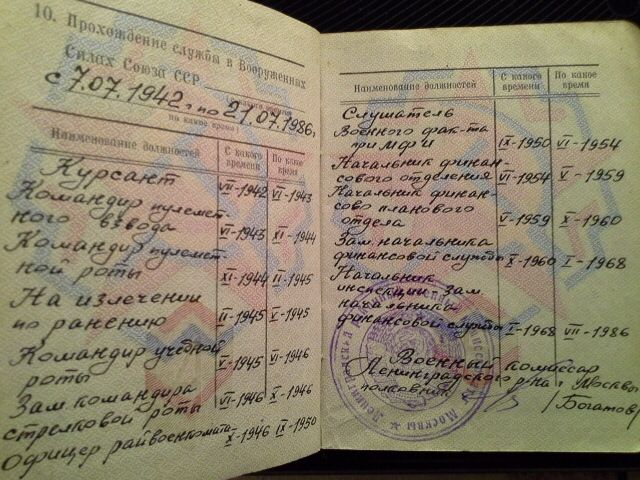 10. Прохождение службы в Вооруженных
Силах Союза ССР
с 7.07.1942 г по 21.07.1986 г.
по какое время)
Наименование должностей С какого времени По какое время
Курсант VII-1942 VI-1943
Командир пулемет-
ного взвода VII-1943 XI-1944
Командир пулемет-
ной роты XI-1944 II-1945
На излечении
по ранению II-1945 V-1945
Командир учебной
роты V-1945 VI-1946
Зам. командира
стрелковой роты VI-1946 X-1946
Офицер райвоенкомата X-1946 IX-1950
Наименование должностей С какого времени По какое время
Слушатель
Военного фак-та
при МФИ IX-1950 VI-1954
Начальник финан-
сового отделения VI-1954 V-1959
Начальник финан-
сово планового
отдела V-1959 X-1960
Зам. начальника
финансовой службы X-1960 I-1968
Начальник
инспекции Зам.
начальника
финансовой службы I-1968 VII-1986
Военный комиссар
Ленинградского р-на г. Москвы
полковник /Богатов/
Москвы